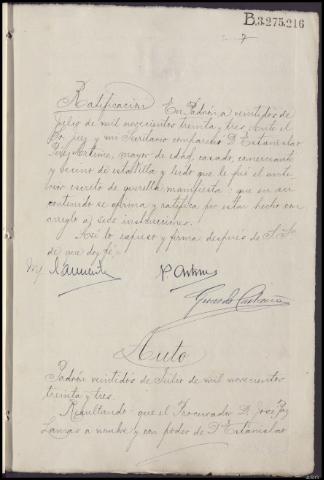 B.3.275.216
7
Ratificación En Padrón, a veintidos de
Julio de mil novecientos treinta y tres. Ante el
Sr. Juez y mi Secretario compareció D. Estanislao
Pérez Artime, mayor de edad, casado, comerciante
y vecino de esta villa y leido que le fué el ante-
rior escrito de querella manifiesta: que en su
contenido se afirma y ratifica por estar hecho con
arreglo a sus instrucciones.
Así lo expresó y firma después de S. Sª
de que doy fé.
P. Artime
Gerardo
Auto
Padrón veintidós de Julio de mil novecientos
treinta y tres.
Resultando: que el Procurador D. José
Lamas a nombre y con poder de D. Estanislao